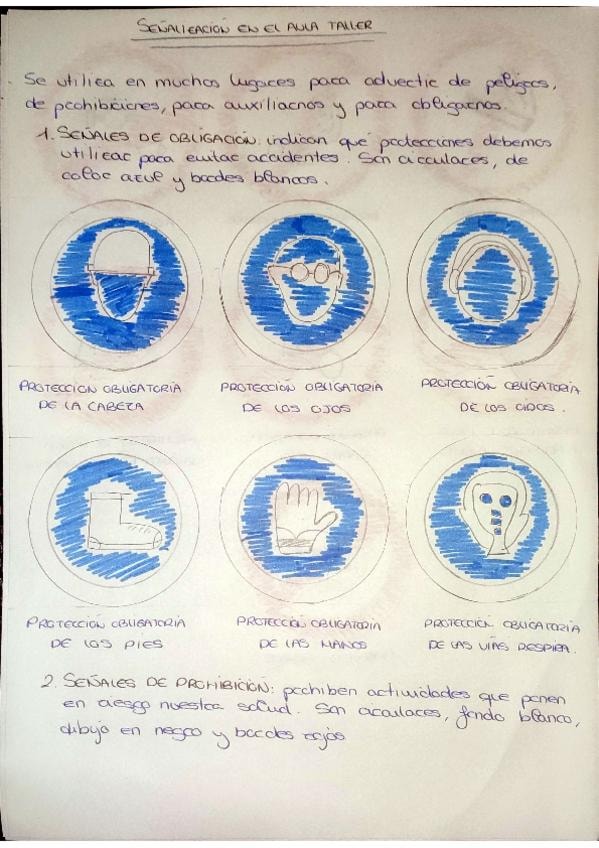 SEÑALIZACIÓN EN EL AULA TALLER
Se utiliza en muchos lugares para advertir de peligros,
de prohibiciones, para auxiliarnos y para obligarnos.
1. SEÑALES DE OBLIGACIÓN: indican qué protecciones debemos
utilizar para evitar accidentes. Son circulares, de
color azul y bordes blancos.
PROTECCIÓN OBLIGATORIA
DE LA CABEZA
PROTECCIÓN OBLIGATORIA
DE LOS OJOS
PROTECCIÓN OBLIGATORIA
DE LOS OIDOS.
PROTECCIÓN OBLIGATORIA
DE LOS PIES
PROTECCIÓN OBLIGATORIA
DE LAS MANOS
PROTECCIÓN OBLIGATORIA
DE LAS VÍAS RESPIRA.
2. SEÑALES DE PROHIBICIÓN: prohiben actividades que ponen
en riesgo nuestra salud. Son circulares, fondo blanco,
dibujo en negro y bordes rojos